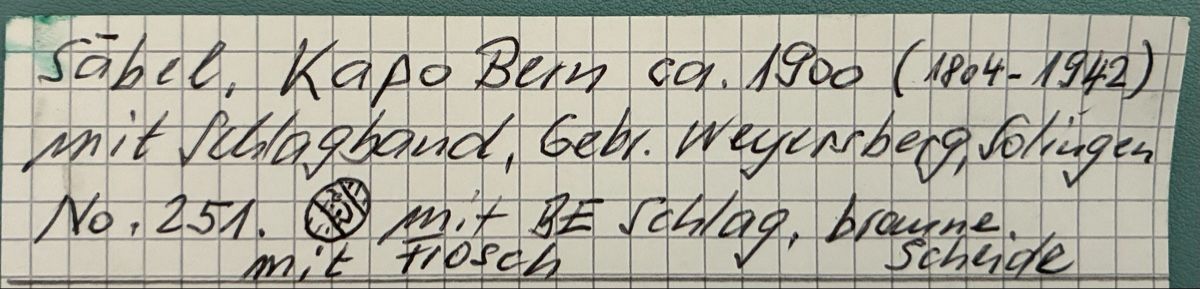 Säbel, Kapo Bern ca. 1900 (1804-1942)
mit Schlagband, Gebr. Weyersberg, Solingen
No. 251. mit BE Schlag, braune.
mit Frosch Scheide